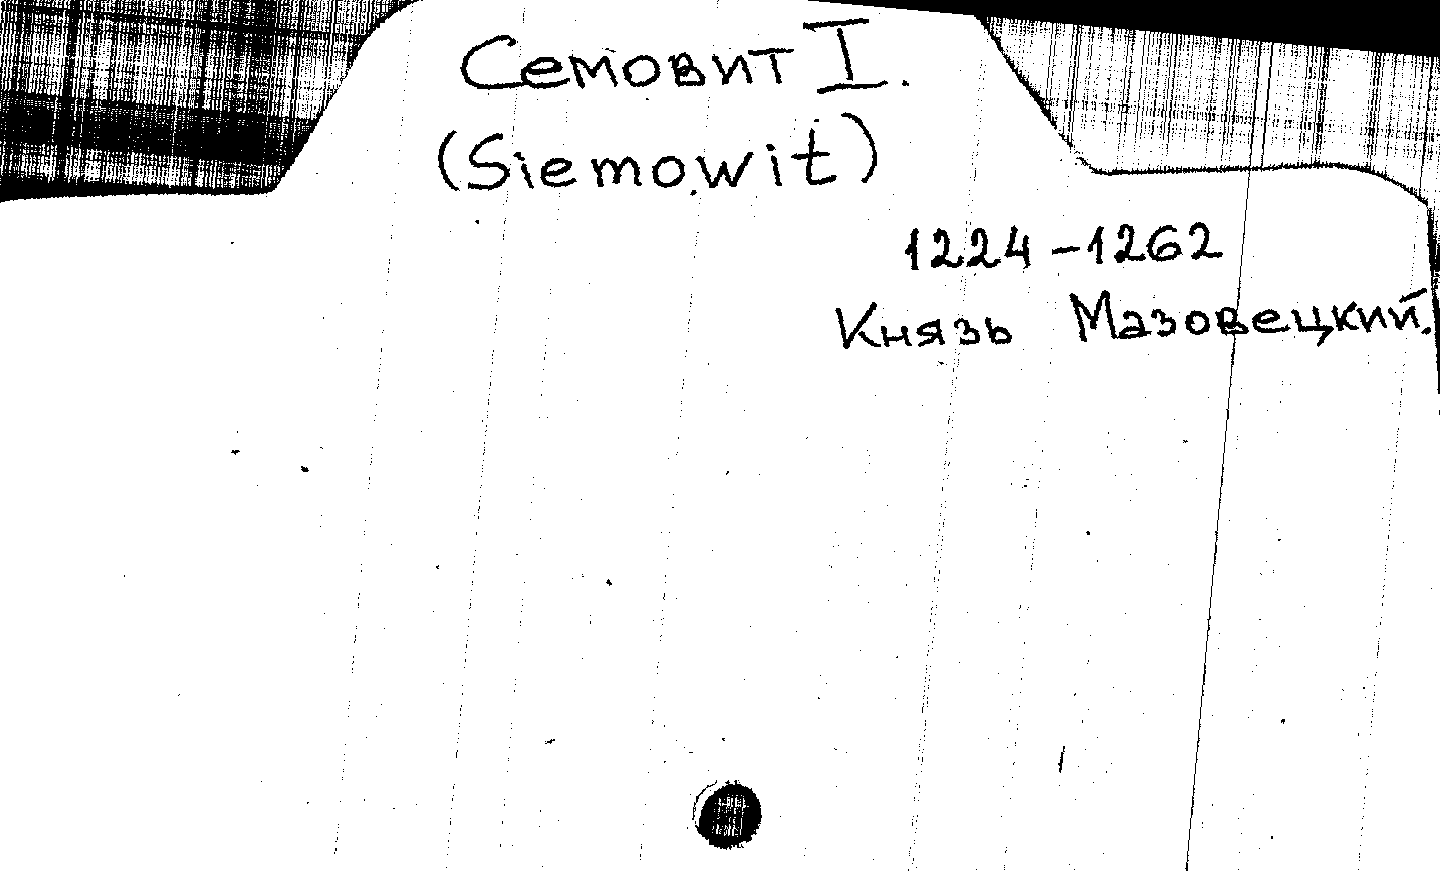 Семовит I.
(Siemowit)
1224-1262
Князь Мазовецкий.